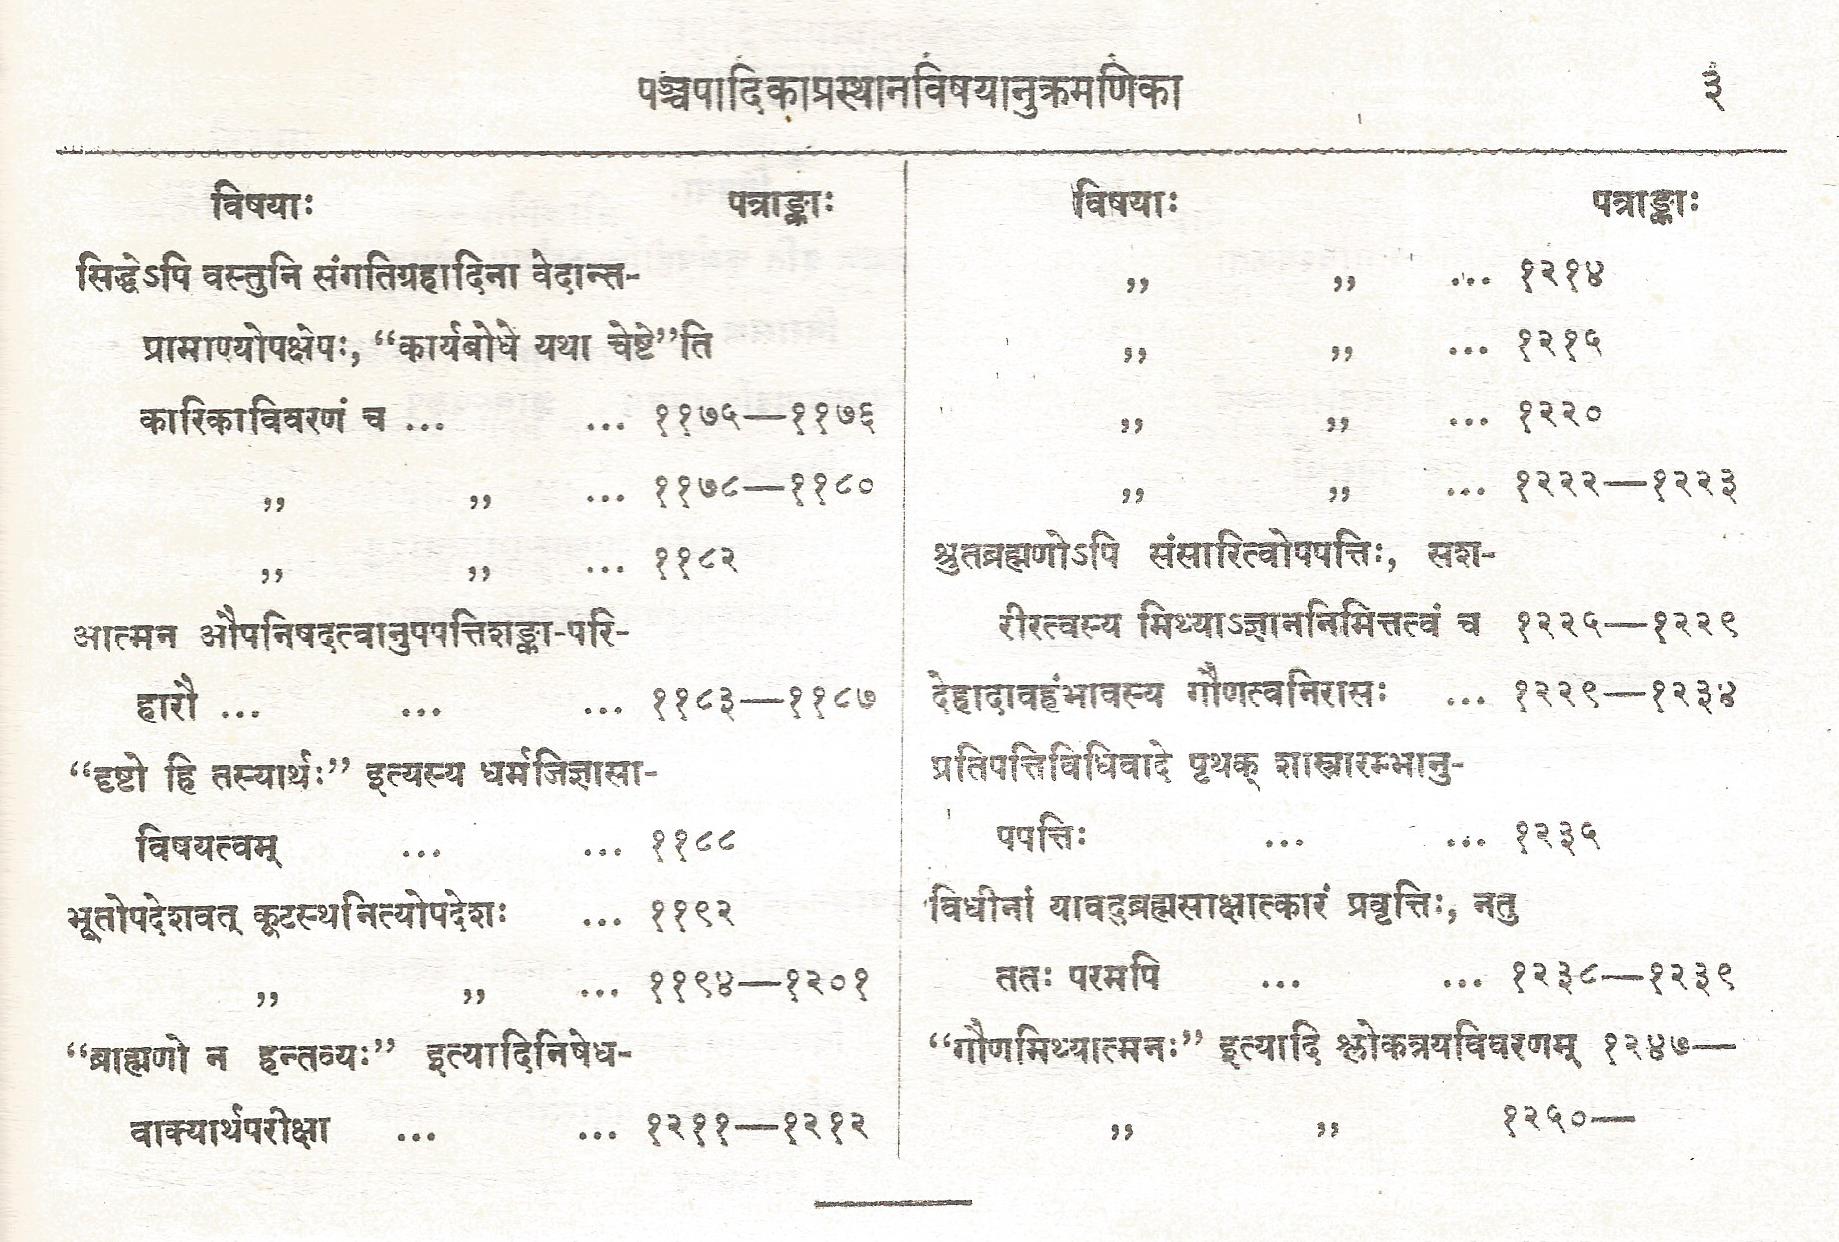 पञ्चपादिकाप्रस्थानविषयानुक्रमणिका ३
विषयाः पत्राङ्काः
सिद्धेऽपि वस्तुनि संगतिग्रहादिना वेदान्त-
प्रामाण्योपक्षेपः, “कार्यबोधे यथा चेष्टे”ति
कारिकाविवरणं च ... ... ११७५—११७६
,, ,, ... ११७८—११८०
,, ,, ... ११८२
आत्मन औपनिषदत्वानुपपत्तिशङ्का-परि-
हारौ ... ... ... ११८३—११८७
“दृष्टो हि तस्यार्थः” इत्यस्य धर्मजिज्ञासा-
विषयत्वम् ... ... ११८८
भूतोपदेशवत् कूटस्थनित्योपदेशः ... ११९२
,, ,, ... ११९४—१२०१
“ब्राह्मणो न हन्तव्यः” इत्यादिनिषेध-
वाक्यार्थपरीक्षा ... ... १२११—१२१२
विषयाः पत्राङ्काः
,, ,, ... १२१४
,, ,, ... १२१५
,, ,, ... १२२०
,, ,, ... १२२२—१२२३
श्रुतब्रह्मणोऽपि संसारित्वोपपत्तिः, सश-
रीरत्वस्य मिथ्याऽज्ञाननिमित्तत्वं च १२२५—१२२९
देहादावहंभावस्य गौणत्वनिरासः ... १२२९—१२३४
प्रतिपत्तिविधिवादे पृथक् शास्त्रारम्भानु-
पपत्तिः ... ... १२३५
विधीनां यावद्ब्रह्मसाक्षात्कारं प्रवृत्तिः, नतु
ततः परमपि ... ... १२३८—१२३९
“गौणमिथ्यात्मनः” इत्यादि श्लोकत्रयविवरणम् १२४७—
,, ,, १२५०—